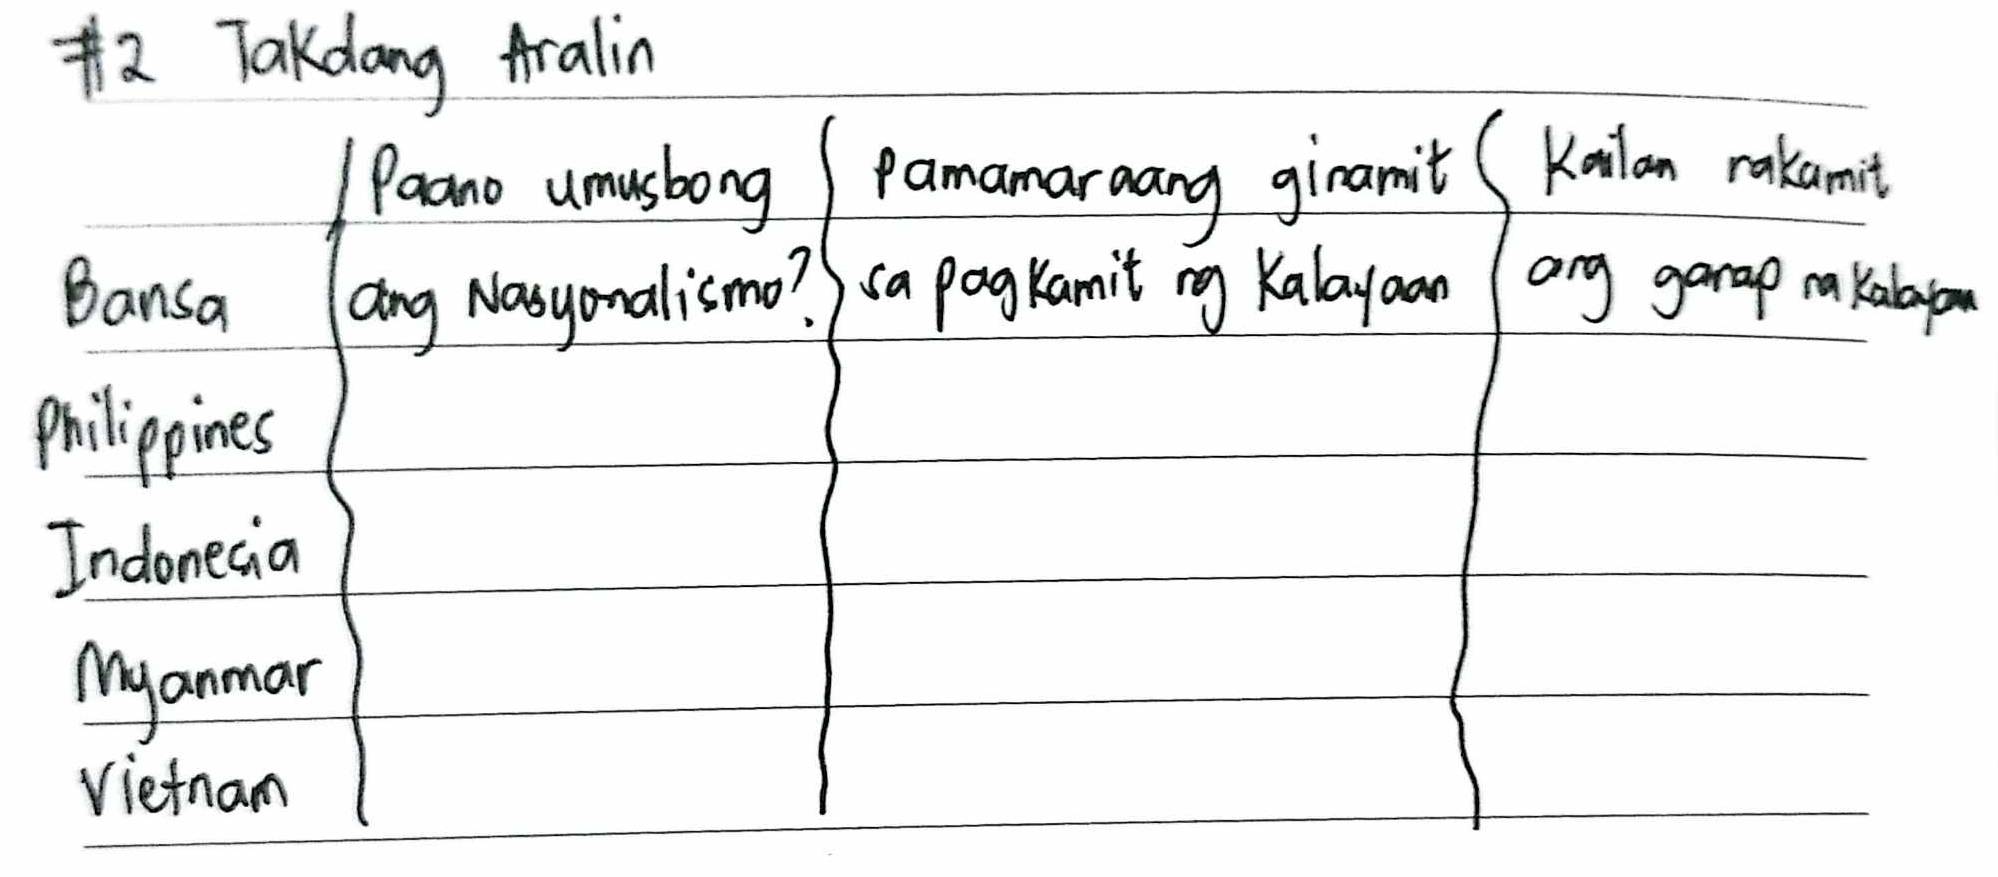 #2 Takdang Aralin
Paano umusbong pamamaraang ginamit Kailan nakamit
Bansa ang Nasyonalismo? sa pagkamit ng Kalayaan ang ganap na Kalayaan
Philippines
Indonesia
Myanmar
Vietnam